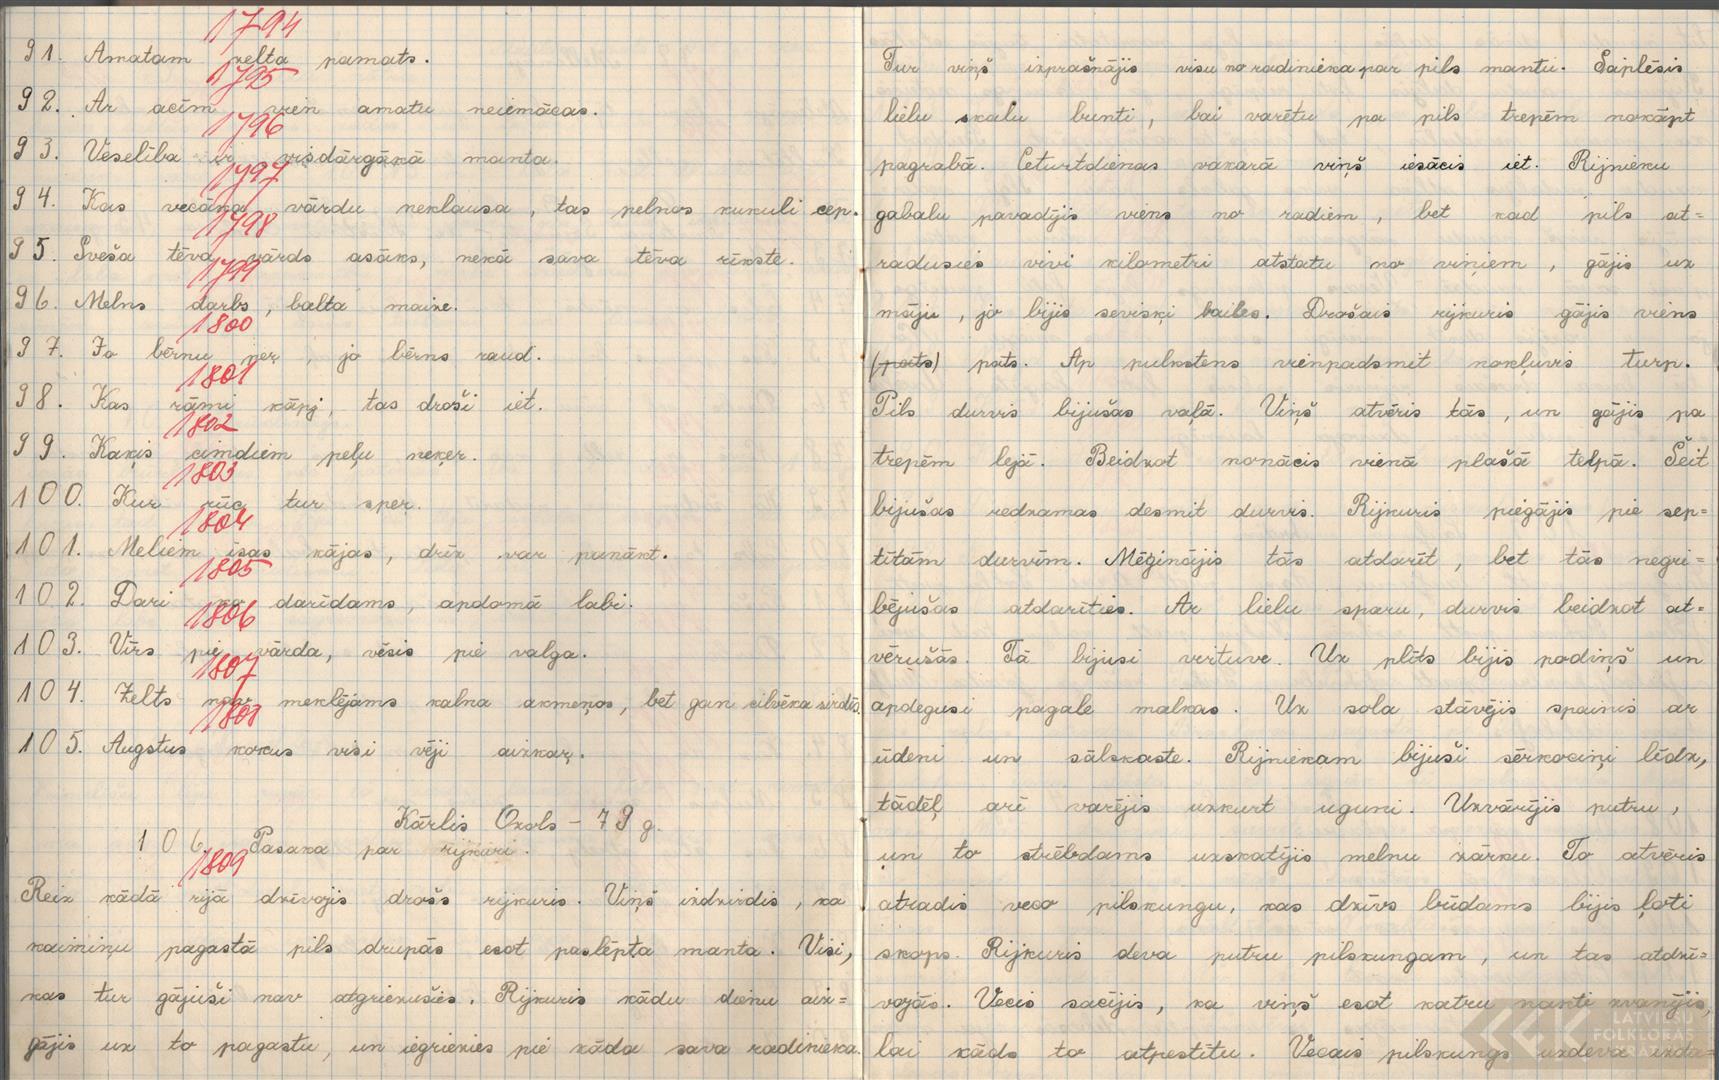 1794
91. Amatam zelta pamats.
1795
92. Ar acīm vien amatu neiemācas.
1796
93. Veselība ir visdārgākā manta.
1797
94. Kas vecāka vārdu neklausa, tas pelnos kukuli cep.
1798
95. Sveša tēva vārds asāks, nekā sava tēva rīkste.
1799
96. Melns darbs, balta maize.
1800
97. Jo bērnu per, jo bērns raud.
1801
98. Kas rāmi kāpj, tas droši iet.
1802
99. Kaķis cimdiem peļu neķer.
1803
100. Kur rūc tur sper.
1804
101. Meliem īsas kājas, drīz var panākt.
1805
102. Dari ko darīdams, apdomā labi.
1806
103. Vīrs pie vārda, vēsis pie valga.
1807
104. Zelts nav meklējams kalna akmeņos, bet gan cilvēka sirdīs.
1808
105. Augstus kokus visi vēji aizkaŗ.
Kārlis Ozols – 79 g.
106. Pasaka par rijkuri.
1809
Reiz kādā rijā dzīvojis drošs rijkuris. Viņš izdzirdis, ka
kaimiņu pagastā pils drupās esot paslēpta manta. Visi,
kas tur gājuši nav atgriezušies. Rijkuris kādu dienu aiz=
gājis uz to pagastu, un iegriezies pie kāda sava radinieka.
Tur viņš izprašņājis visu no radinieka par pils mantu. Saplēsis
lielu skalu bunti, lai varētu pa pils trepēm nokāpt
pagrabā. Ceturtdienas vakarā viņš iesācis iet. Rijnieku
gabalu pavadījis viens no radiem, bet kad pils at=
radusies divi kilometri atstatu no viņiem, gājis uz
māju, jo bijis sevišķi bailes. Drošais rijkuris gājis viens
(pats) pats. Ap pulkstens vienpadsmit nokļuvis turp.
Pils durvis bijušas vaļā. Viņš atvēris tās, un gājis pa
trepēm lejā. Beidzot nonācis vienā plašā telpā. Šeit
bijušas redzamas desmit durvis. Rijkuris piegājis pie sep=
tītām durvīm. Mēģinājis tās atdarīt, bet tās negri=
bējušas atdarīties. Ar lielu sparu, durvis beidzot at=
vērušās. Tā bijusi virtuve. Uz plīts bijis podiņš un
apdegusi pagale malkas. Uz sola stāvējis spainis ar
ūdeni un sālskaste. Rijniekam bijuši sērkociņi līdz,
tādēļ arī varējis uzkurt uguni. Uzvārījis putru,
un to strēbdams uzskatījis melnu zārku. To atvēris
atradis veco pilskungu, kas dzīvs būdams bijis ļoti
skops. Rijkuris deva putru pilskungam, un tas atdzī=
vojās. Vecis sacījis, ka viņš esot katru nakti zvanījis,
lai kāds to atpestītu. Vecais pilskungs uzdeva uzda=
LATVIEŠU
FOLKLORAS
KRĀTUVE